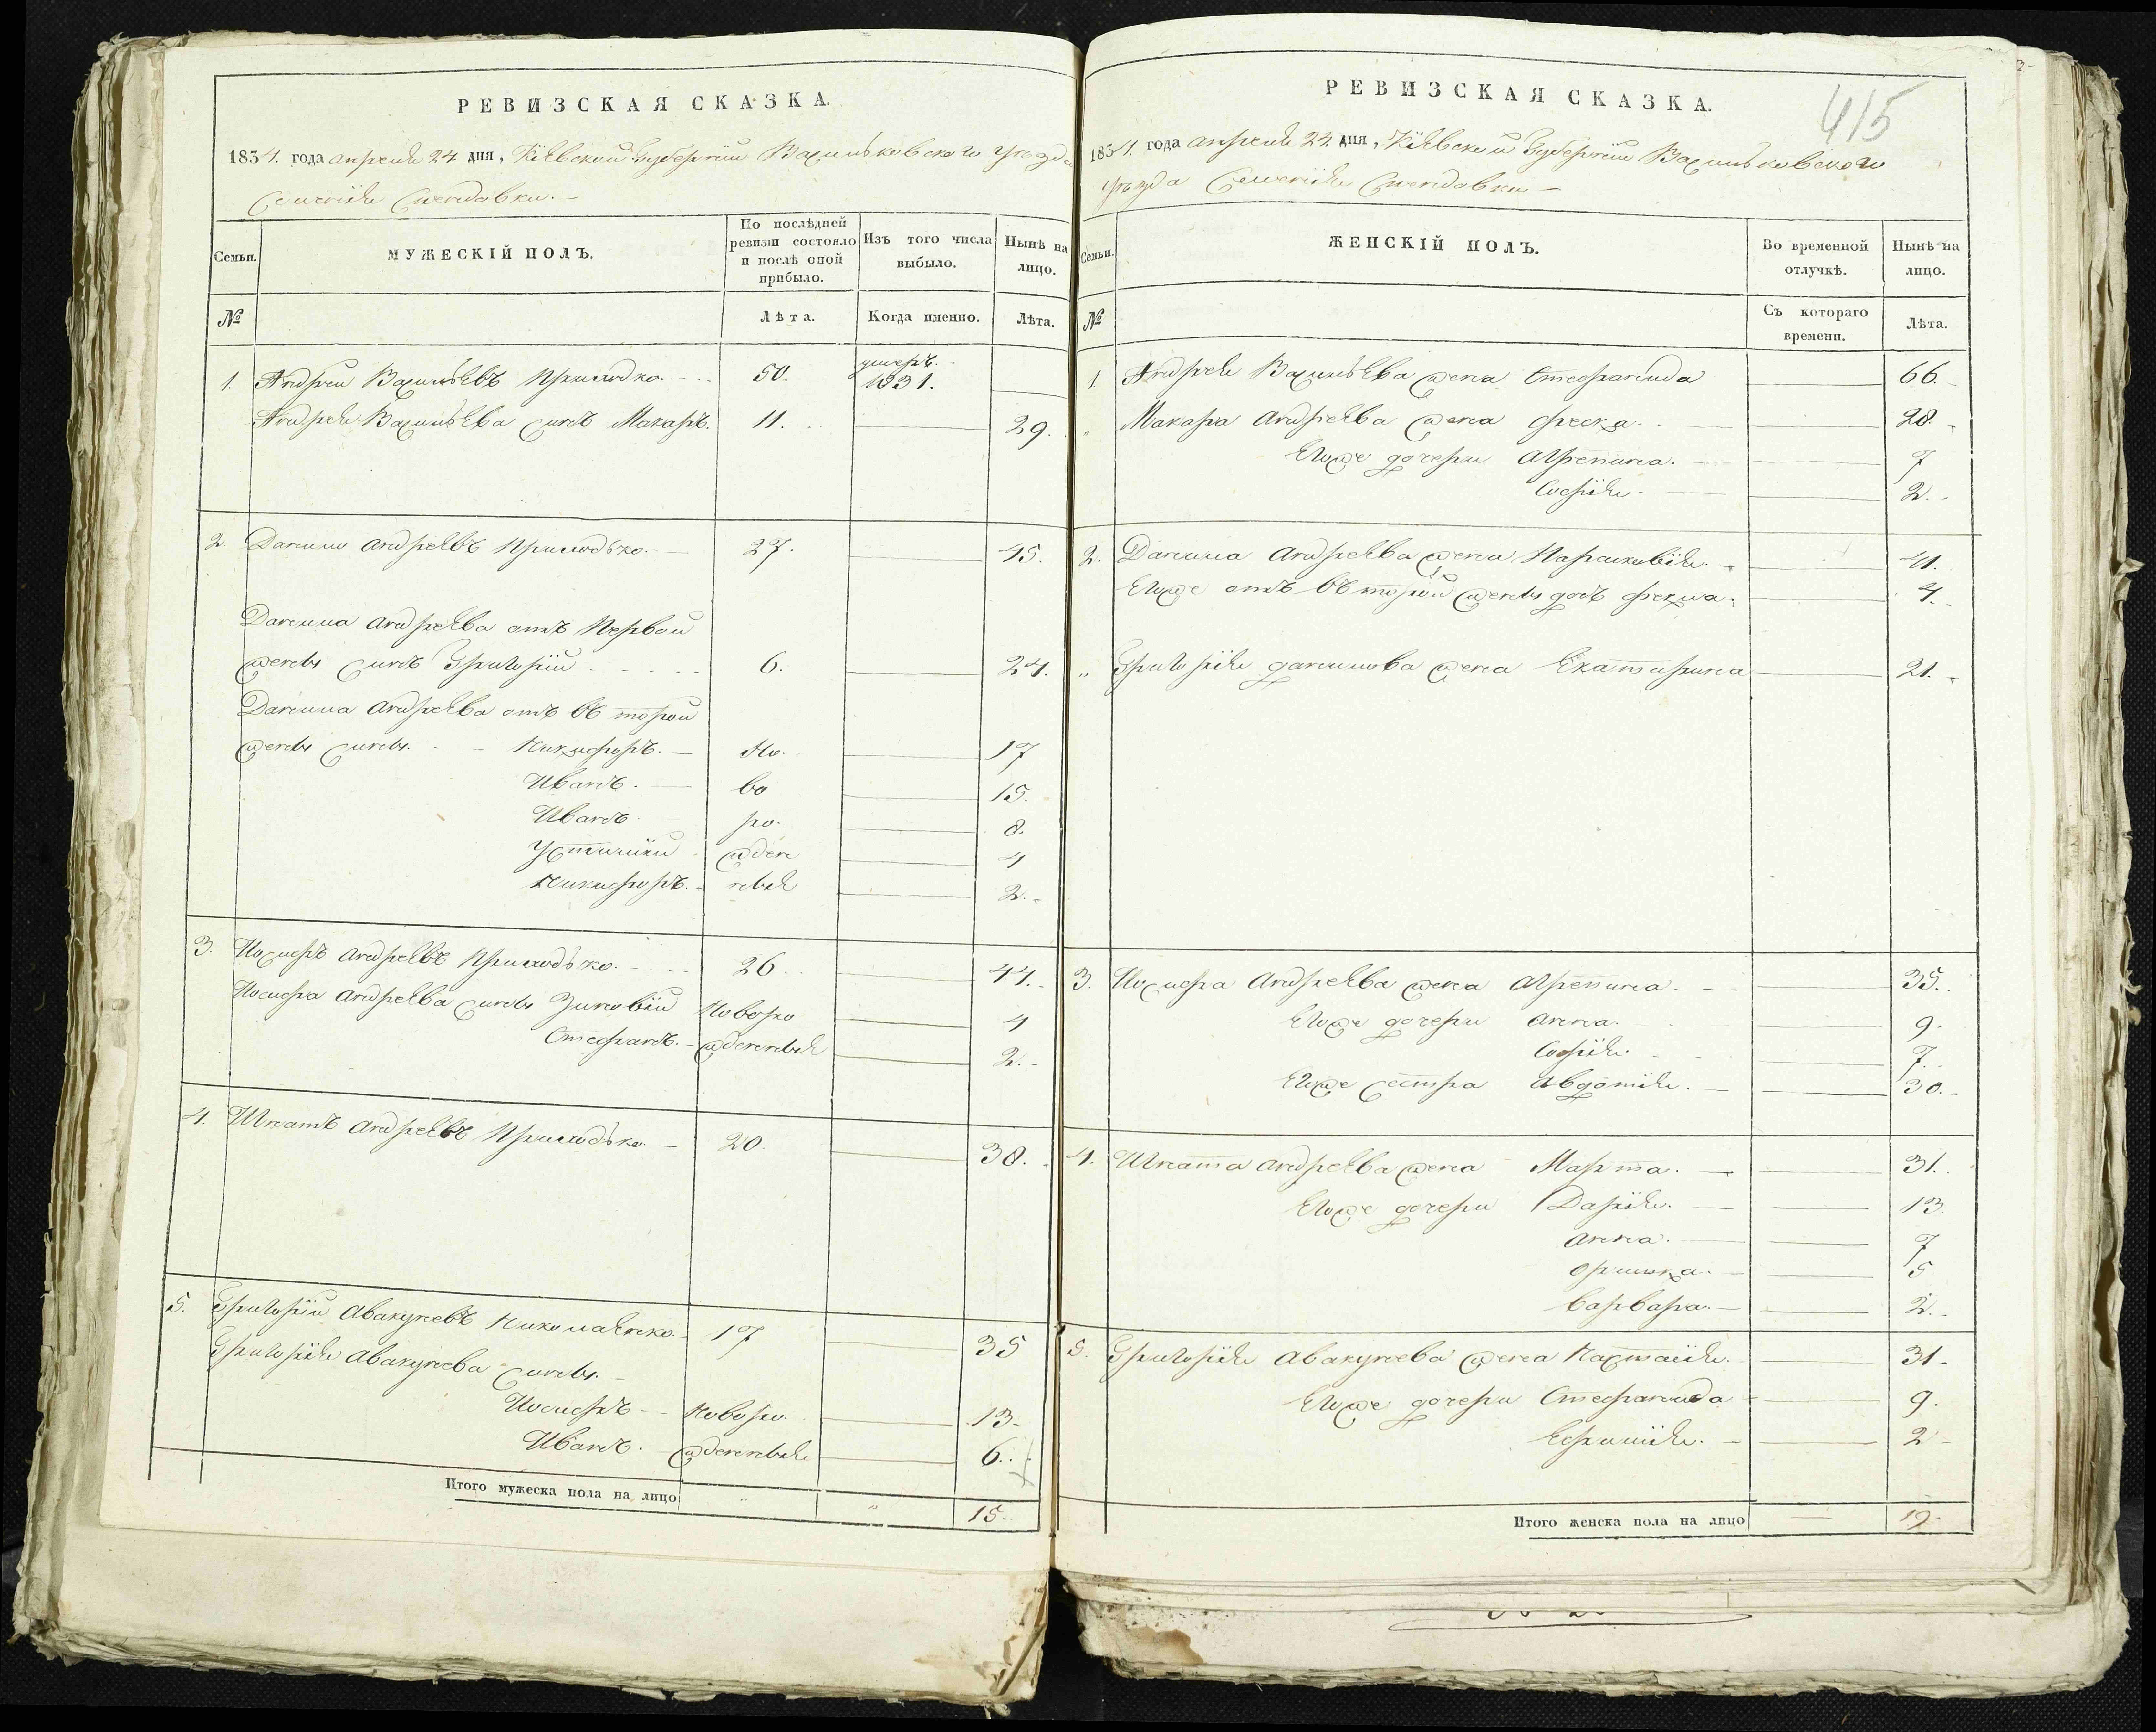 РЕВИЗСКАЯ СКАЗКА.
1834. года апреля 24 дня, Кіевской Губерніи Васильковского уезда
Селенія
Семьи.
МУЖЕСКІЙ ПОЛЪ.
По послѣдней ревизіи состояло и послѣ оной прибыло.
Изъ того числа выбыло.
Нынѣ на лицо.
№
Лѣта.
Когда именно.
Лѣта.
1. Андрей Васильевъ Приходко. 50. умеръ. 1831.
Андрея Васильева сынъ Макаръ. 11. 29.
2. Данило Андреевъ Приходько. 27. 45.
Данила Андреева отъ Первой
жены сынъ Григорій 6. 24.
Данила Андреева отъ второй
жены сыны. Никифоръ. Но. 17
Иванъ. во 15.
Иванъ ро. 8.
Устинъ жден 4
Никифоръ. ныя 2.
3. Иосифъ Андреевъ Приходько. 26. 44.
Иосифа Андреева сыны Зиновій Новоро 4
Стефанъ. жденныя 2.
4. Игнатъ Андреевъ Приходько. 20. 38.
5. Григорій Авакумовъ Николаенко. 17 35
Григорія Авакумова сыны.
Иосифъ Новоро. 13
Иванъ. жденныя 6.
Итого мужеска пола на лицо 15.
415
РЕВИЗСКАЯ СКАЗКА.
1834. года апреля 24. дня, Кіевской Губерніи Васильковского
уезда Селенія
Семьи.
ЖЕНСКІЙ ПОЛЪ.
Во временной отлучкѣ.
Нынѣ на лицо.
№
Съ котораго времени.
Лѣта.
1. Андрея Васильева жена Стефанида 66.
" Макара Андреева жена 28.
Егоже дочери Агрепина. 7
Софія 2.
2. Данила Андреева жена Параскевія. 41.
Егоже отъ второй жены дочь Фекла. 4.
" Григорія Данилова жена Екатирина 21.
3. Иосифа Андреева жена Агрепина 35.
Егоже дочери Анна. 9.
Софія 7.
Егоже сестра Авдотія. 30.
4. Игната Андреева жена Марта. 31.
Егоже дочери Дарія. 13
Анна. 7
Оришка. 5
Варвара. 2.
5. Григорія Авакумова жена Настасія. 31
Егоже дочери Стефанида 9.
Ефимія. 2
Итого женска пола на лицо 19.